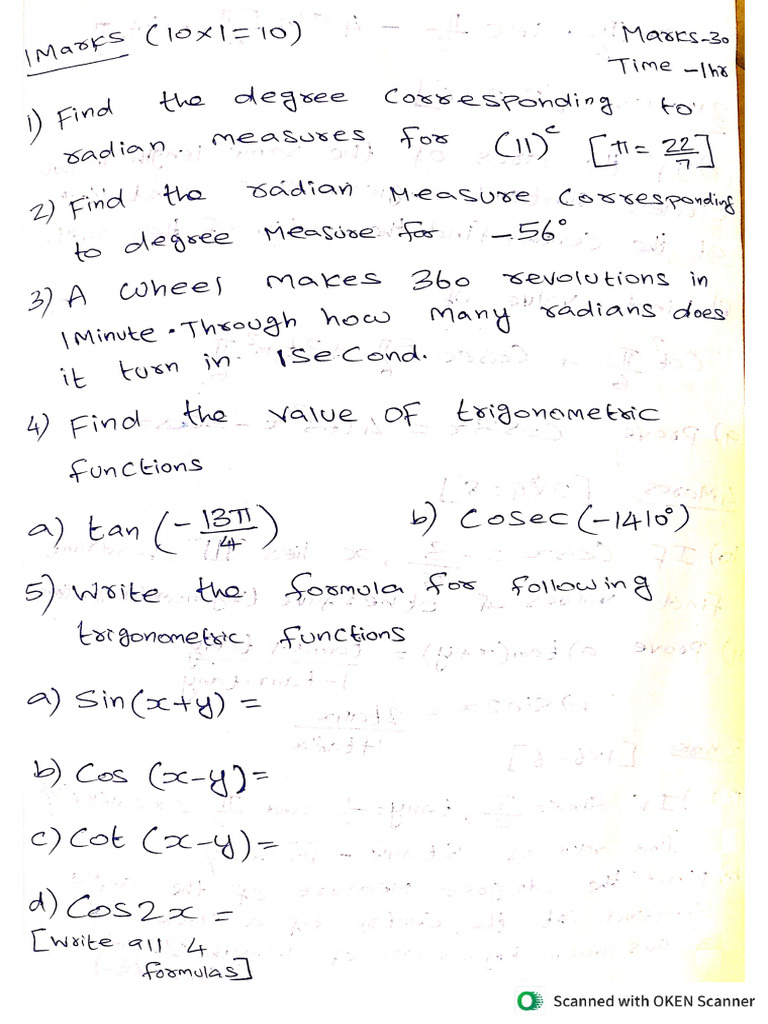 1Marks (10x1=10)
Marks-30
Time -1hr
1) Find the degree Corresponding to
radian measures for (11)ᶜ [π = 22/7]
2) Find the radian Measure Corresponding
to degree Measure for -56°.
3) A wheel makes 360 revolutions in
1Minute. Through how many radians does
it turn in 1Second.
4) Find the value of trigonometric
functions
a) tan (-13π/4)
b) Cosec (-1410°)
5) Write the formula for following
trigonometric functions
a) Sin(x+y) =
b) Cos (x-y)=
c) Cot (x-y)=
d) Cos2x =
[Write all 4
formulas]
Scanned with OKEN Scanner